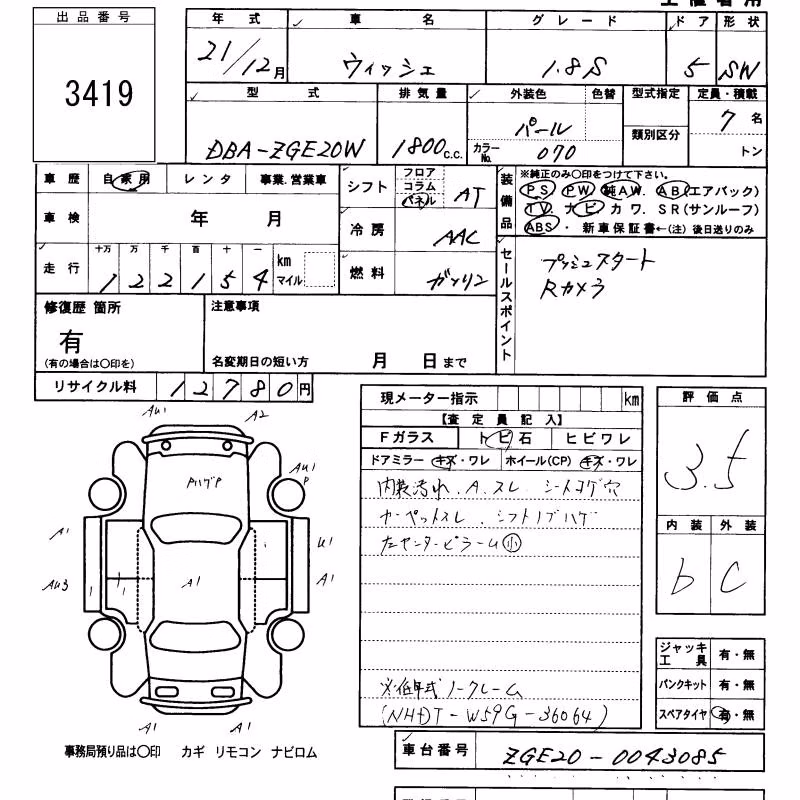 出品番号
3419
年式 車名 グレード ドア 形状
21/12月 ウィッシュ 1.8S 5 SW
型式 排気量 外装色 色替 型式指定 定員・積載
DBA-ZGE20W 1800c.c. パール 類別区分 7名
カラーNo. 070 トン
車歴 自家用 レンタ 事業.営業車
シフト フロア コラム パネル AT
装備品
※純正のみ〇印をつけて下さい。
PS PW 純AW. AB(エアバック)
TV ナビ カワ. SR(サンルーフ)
ABS・ 新車保証書←(注)後日送りのみ
車検 年 月
冷房 AAC
走行 十万 万 千 百 十 一 km マイル
122154
燃料 ガソリン
セールスポイント
プッシュスタート
Rカメラ
修復歴 箇所
有
(有の場合は〇印を)
注意事項
名変期日の短い方 月 日まで
リサイクル料 12780円
現メーター指示 km
【査定員記入】
Fガラス トビ石 ヒビワレ
ドアミラー キズ・ワレ ホイール(CP) キズ・ワレ
内装汚れ.A.スレ シートコゲ穴
カーペットスレ.シフトノブハゲ
左センターピラーム小
※低年式ノークレーム
(NHDT-W59G-36064)
評価点
3.5
内装 外装
b C
AU1 A2
ハゲP
AU1
P
A1 U1
AU3 A1 A1
A1 A1
ジャッキ工具 有・無
パンクキット 有・無
スペアタイヤ 有・無
事務局預り品は〇印 カギ リモコン ナビロム
車台番号 ZGE20-0043085